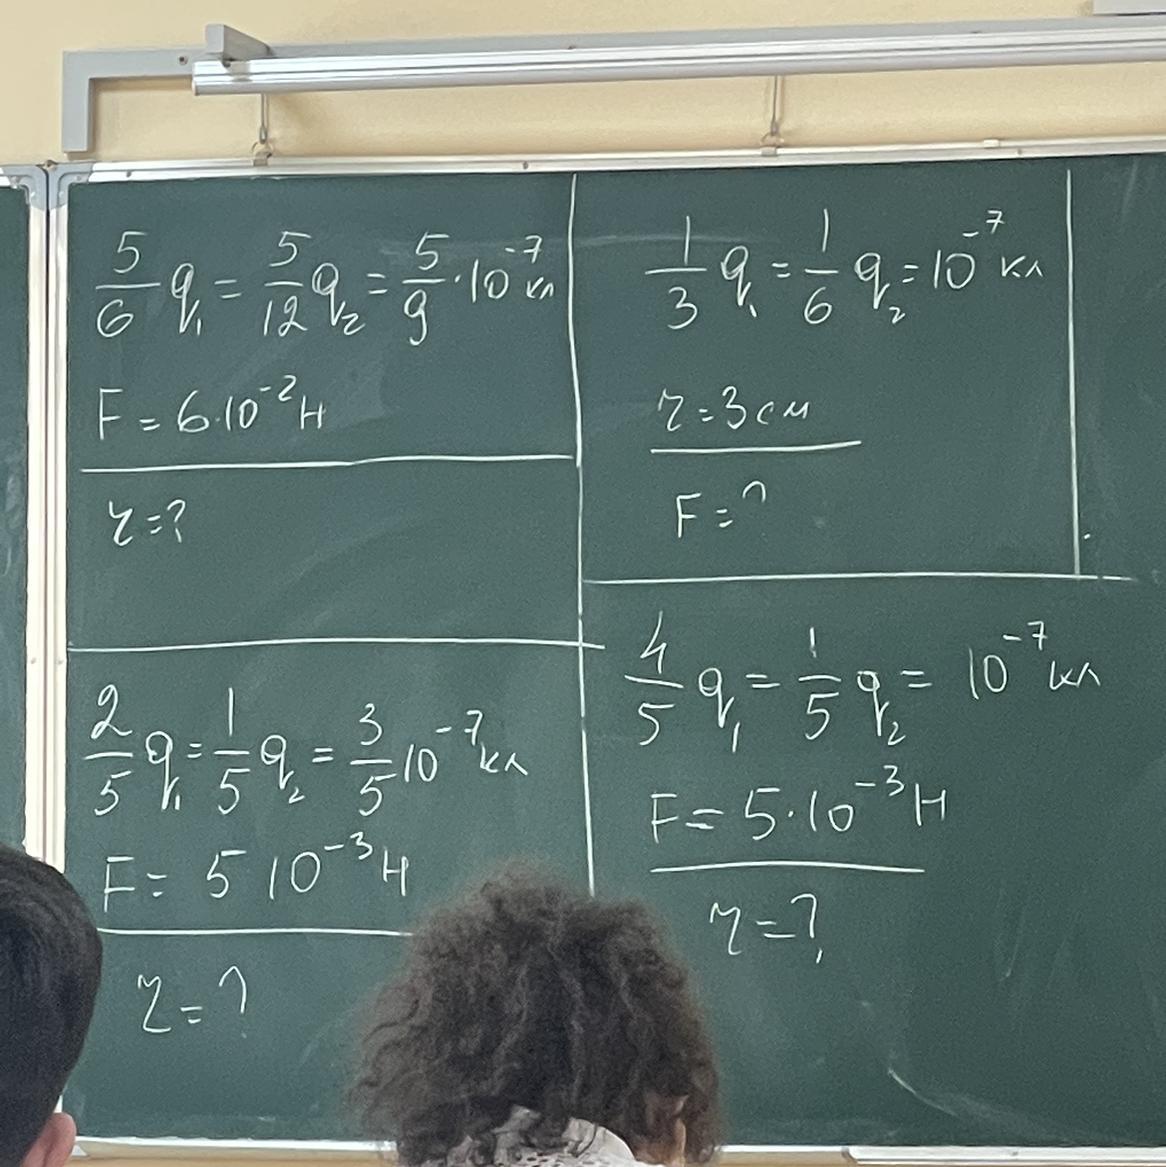 5/6 q₁ = 5/12 q₂ = 5/9 · 10⁻⁷ кл
F = 6·10⁻² Н
r = ?
1/3 q₁ = 1/6 q₂ = 10⁻⁷ кл
r = 3 см
F = ?
2/5 q₁ = 1/5 q₂ = 3/5 10⁻⁷ кл
F = 5 10⁻³ Н
r = ?
4/5 q₁ = 1/5 q₂ = 10⁻⁷ кл
F = 5·10⁻³ Н
r = ?